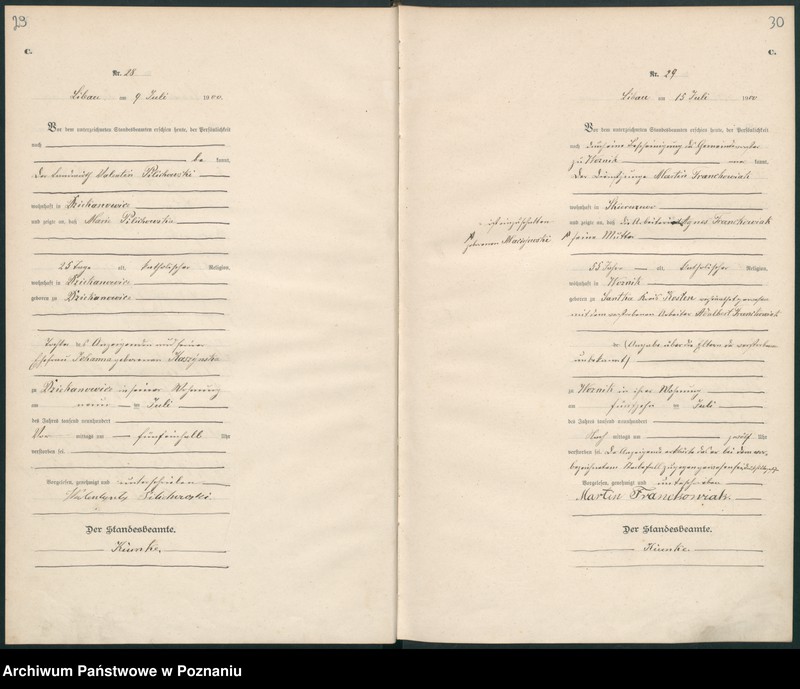 29
C.
Nr. 28
Libau am 9 Juli 1900.
Vor dem unterzeichneten Standesbeamten erschien heute, der Persönlichkeit
nach
be kannt,
Der Landwirth Valentin Pilichowski
wohnhaft in Dziekanowice
und zeigte an, daß Maria Pilichowska
25 Tage alt, katholischer Religion,
wohnhaft in Dziekanowice
geboren zu Dziekanowice
Tochter des Anzeigenden und seiner
Ehefrau Johanna geborenen
zu Dziekanowice in seiner Wohnung
am neun ten Juli
des Jahres tausend neunhundert
Vor mittags um fünfeinhalb Uhr
verstorben sei.
Vorgelesen, genehmigt und unterschrieben
Pilichowski
Der Standesbeamte.
Kiunke.
30
C.
Nr. 29
Libau am 15 Juli 1900
Vor dem unterzeichneten Standesbeamten erschien heute, der Persönlichkeit
nach durch eine Bescheinigung des Gemeindevorstehers
zu Wornik aner kannt,
Der Dienstjunge Martin Franckowiak
wohnhaft in
und zeigte an, daß die Arbeiterin Agnes Franckowiak
seine Mutter
ist einzuschalten
geborenen Maciejewski
55 Jahre alt, katholischer Religion,
wohnhaft in Wornik
geboren zu Kreis Kosten verheirathet gewesen
mit dem verstorbenen Arbeiter Adalbert Franckowiak
der (Angabe über die Eltern der Verstorbenen
unbekannt)
zu Wornik in ihrer Wohnung
am fünfzehn ten Juli
des Jahres tausend neunhundert
Nach mittags um zwölf Uhr
verstorben sei. Der Anzeigende erklärte das er bei dem vor-
bezeichneten Sterbefall zugegen gewesen sei
Vorgelesen, genehmigt und unterschrieben
Martin Franckowiak
Der Standesbeamte.
Kiunke.
Archiwum Państwowe w Poznaniu